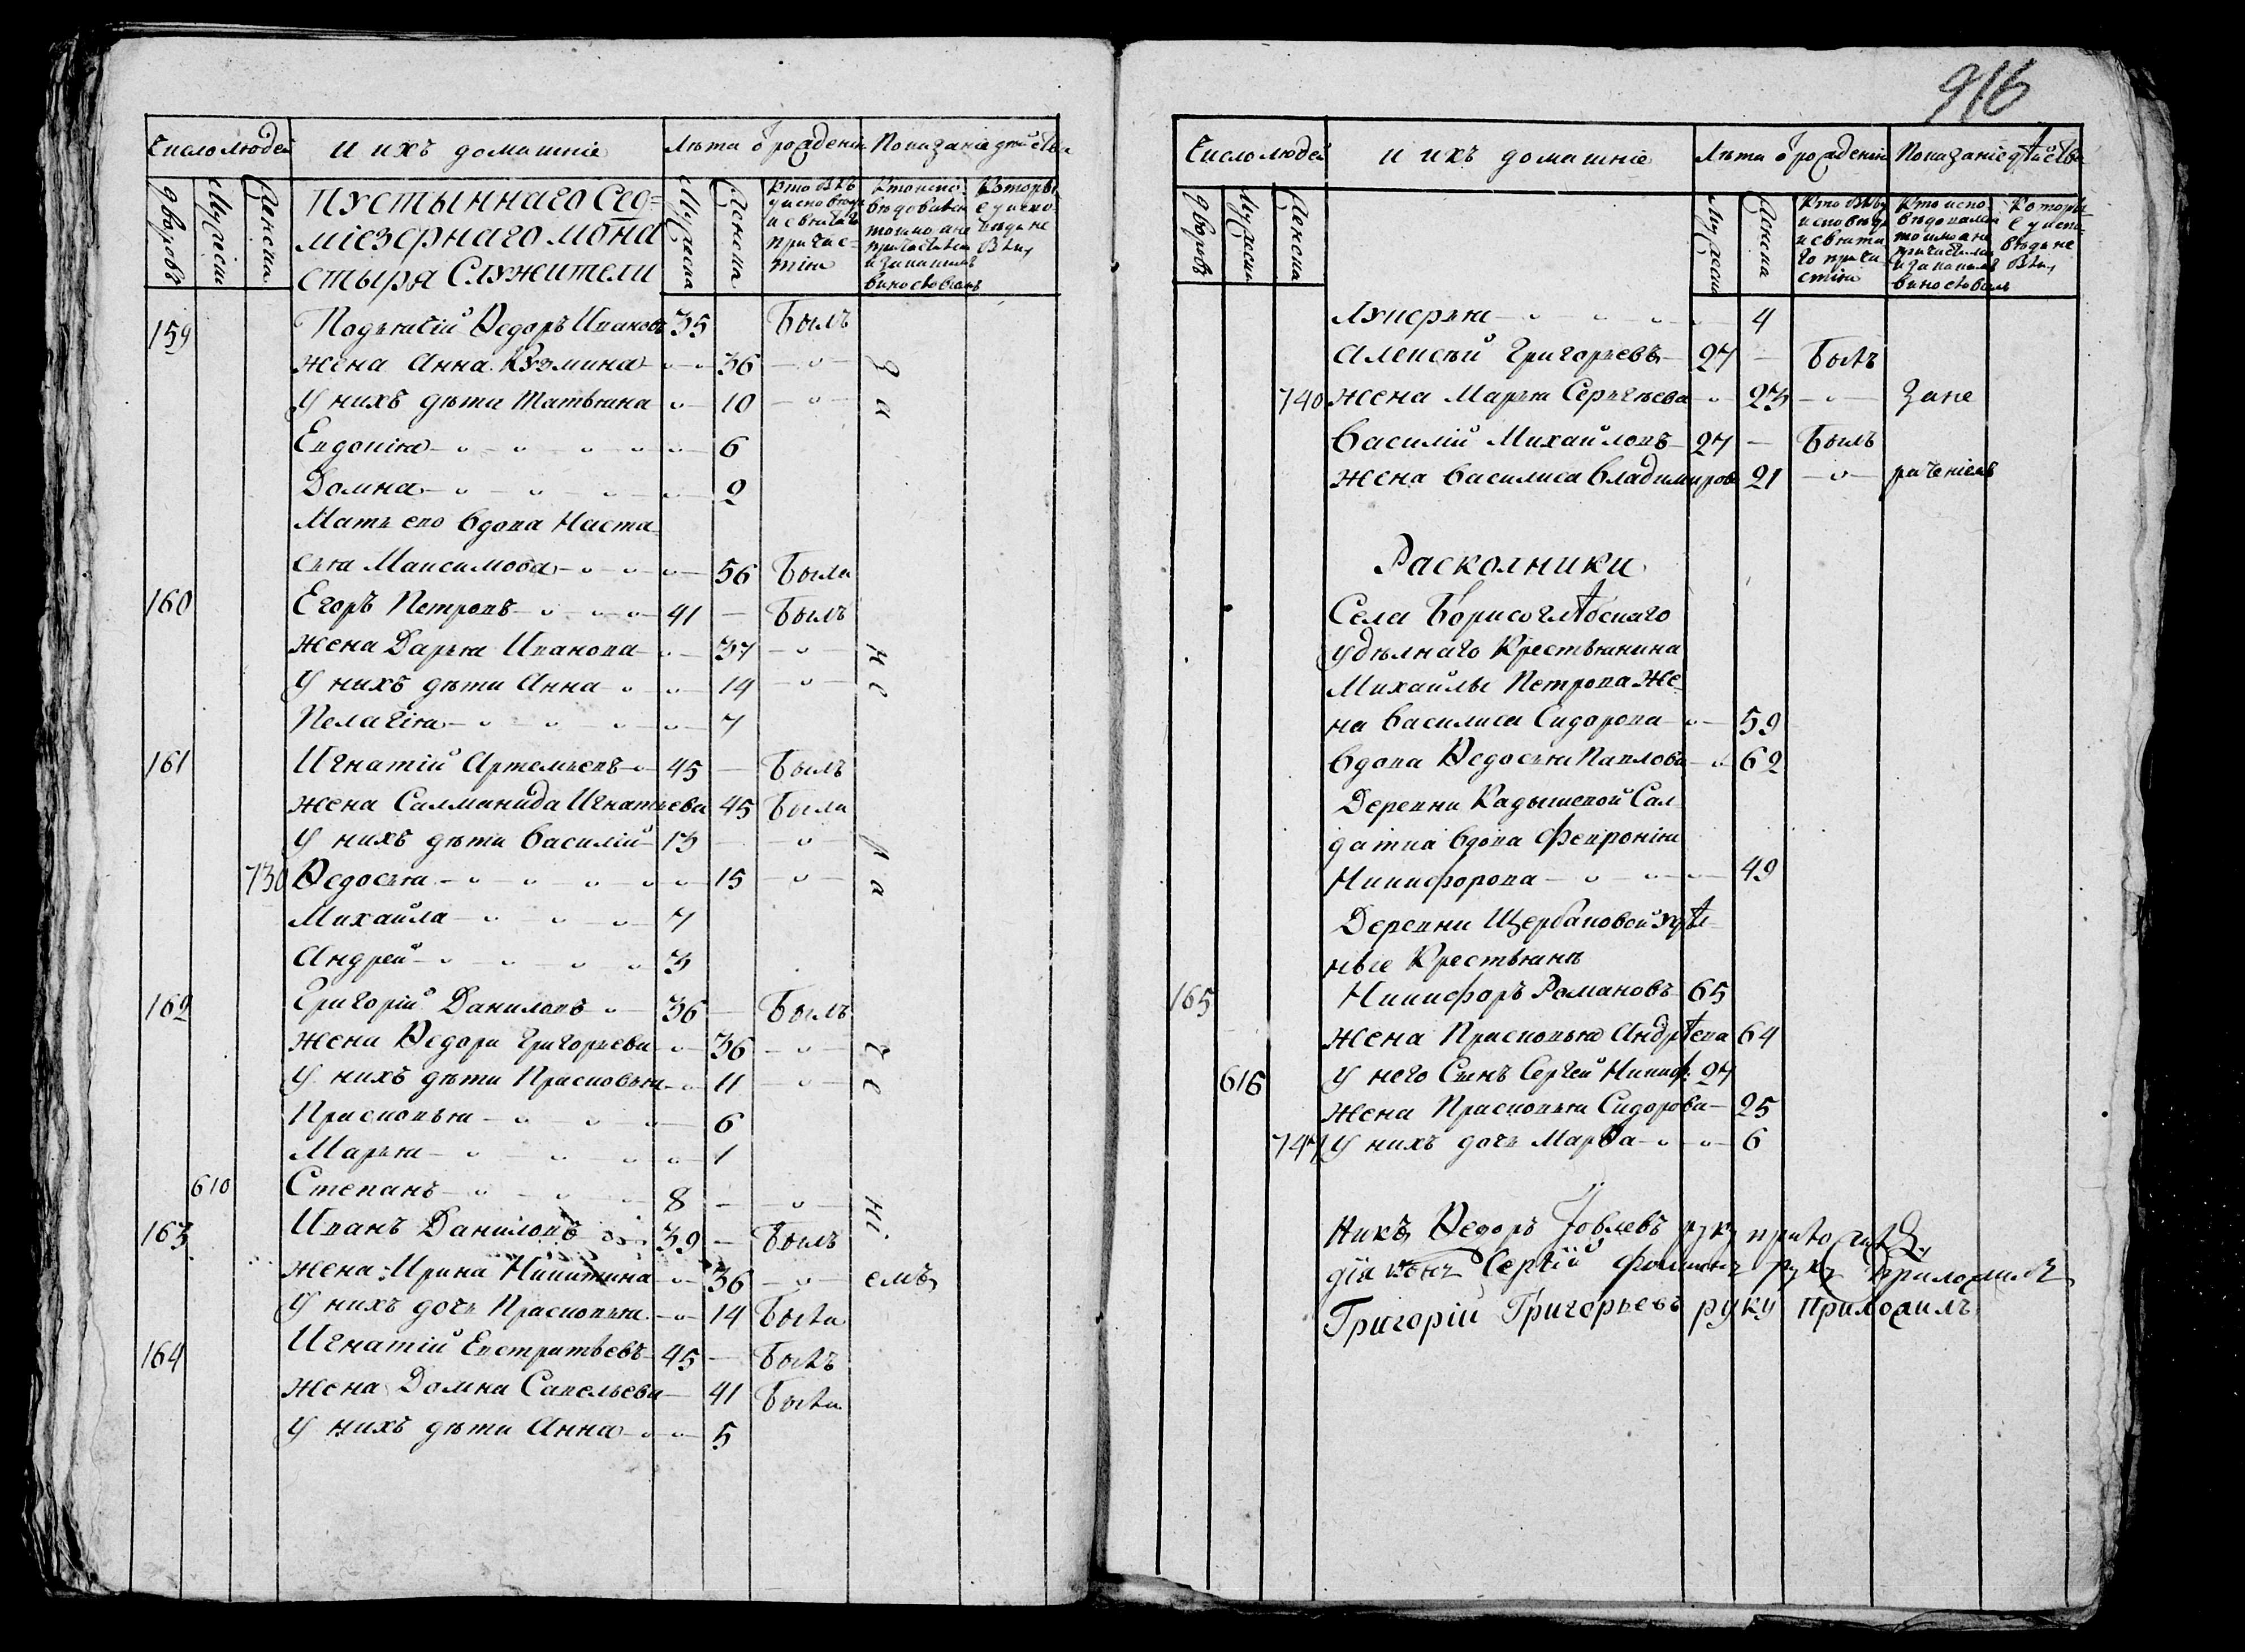 Число людей и ихъ домашніе Лѣта ѿ рожденія Показаніе дѣйства
дворовъ мужеска женска Пустыннаго Сед= мужеска женска Кто былъ у исповѣди и святаго причастія Кто исповѣдовался токмо а не причастился и за какимъ винословіемъ Которые у исповѣди не были
міезернаго мона
стыря Служители
159 Подъячій Ѳедоръ Ивановъ 35 Былъ
жена Анна Кузмина 36 за
У нихъ дѣти Татьяна 10
Евдокія 6
Домна 2
Мать ево вдова Наста
сья Максимова 56 Была
160 Егоръ Петровъ 41 Былъ
жена Дарья Иванова 37 не
У нихъ дѣти Анна 14
Пелагія 7
161 Игнатій Артемьевъ 45 Былъ
жена Саламанида Игнатьева 45 Была
У нихъ дѣти Василій 13 ра
730 Ѳедосья 15
Михайла 7
Андрей 3
162 Григорій Даниловъ 36 Былъ
жена Ѳедора Григорьева 36 че
У нихъ дѣти Прасковья 11
Прасковья 6
Марья 1
610 Степанъ 8 ні
163 Иванъ Даниловъ 39 Былъ
жена Ирина Никитина 36 емъ
У нихъ дочь Прасковья 14 Была
164 Игнатій Евстратьевъ 45 Былъ
жена Домна Савельева 41 Была
У нихъ дѣти Анна 5
916
Число людей и ихъ домашніе Лѣта ѿ рожденія Показаніе дѣйства
дворовъ мужеска женска мужеска женска Кто былъ у исповѣди и святаго причастія Кто исповѣдовался токмо а не причастился и за какимъ винословіемъ Которые у исповѣди не были
Лукерья 4
Алексѣй Григорьевъ 27 Былъ
740 жена Марья Сергѣева 23 Зане
Василій Михайловъ 27 Былъ
жена Василиса Владимиров 21 раченіемъ
Расколники
Села Борисоглѣбскаго
удѣлнаго Крестьянина
Михайлы Петрова Же
на Василиса Сидорова 59
вдова Ѳедосья Павлова 62
Деревни Кадышевой Сал
датка вдова Февронія
Никифорова 49
Деревни Щербаковой удѣл
ные Крестьяня
165 Никифоръ Романовъ 65
жена Прасковья Андрѣева 64
616 У него Сынъ Сергей Никиф: 27
жена Прасковья Сидорова 25
747 У нихъ дочь Марѳа 6
Ѳедоръ Іовлевъ руку приложилъ
діаконъ Сергій Фоминъ руку приложилъ
Григорій Григорьевъ руку приложилъ